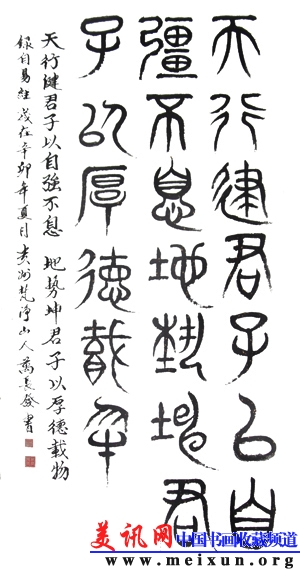 天行健君子以自
彊不息地埶坤君
子以厚德載物
天行健君子以自強不息 地勢坤君子以厚德載物
錄自易經 歲在辛卯年夏月 贵州梵淨山人萬 書
美讯网 中国书画收藏频道
www.meixun.org